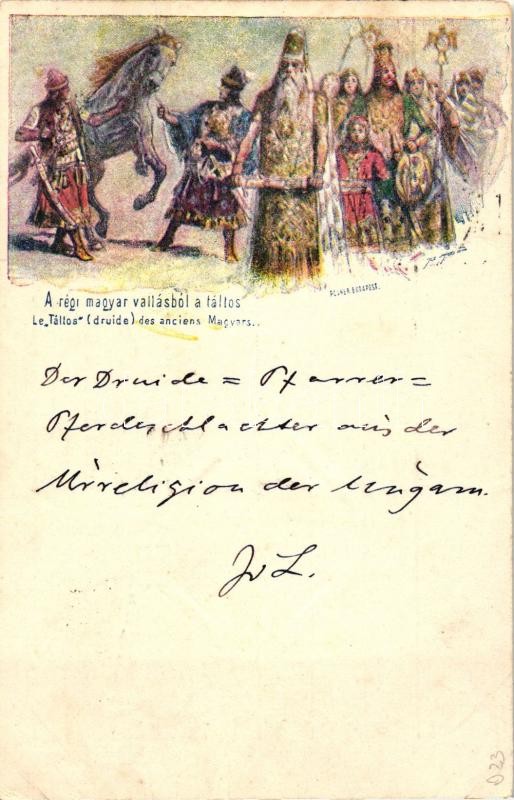 A régi magyar vallásból a táltos
Le „Táltos" (druide) des anciens Magyars..
Der Druide = Pfarrer =
Pferdeschlachter aus der
Urreligion der Ungarn.
JvL.
D23